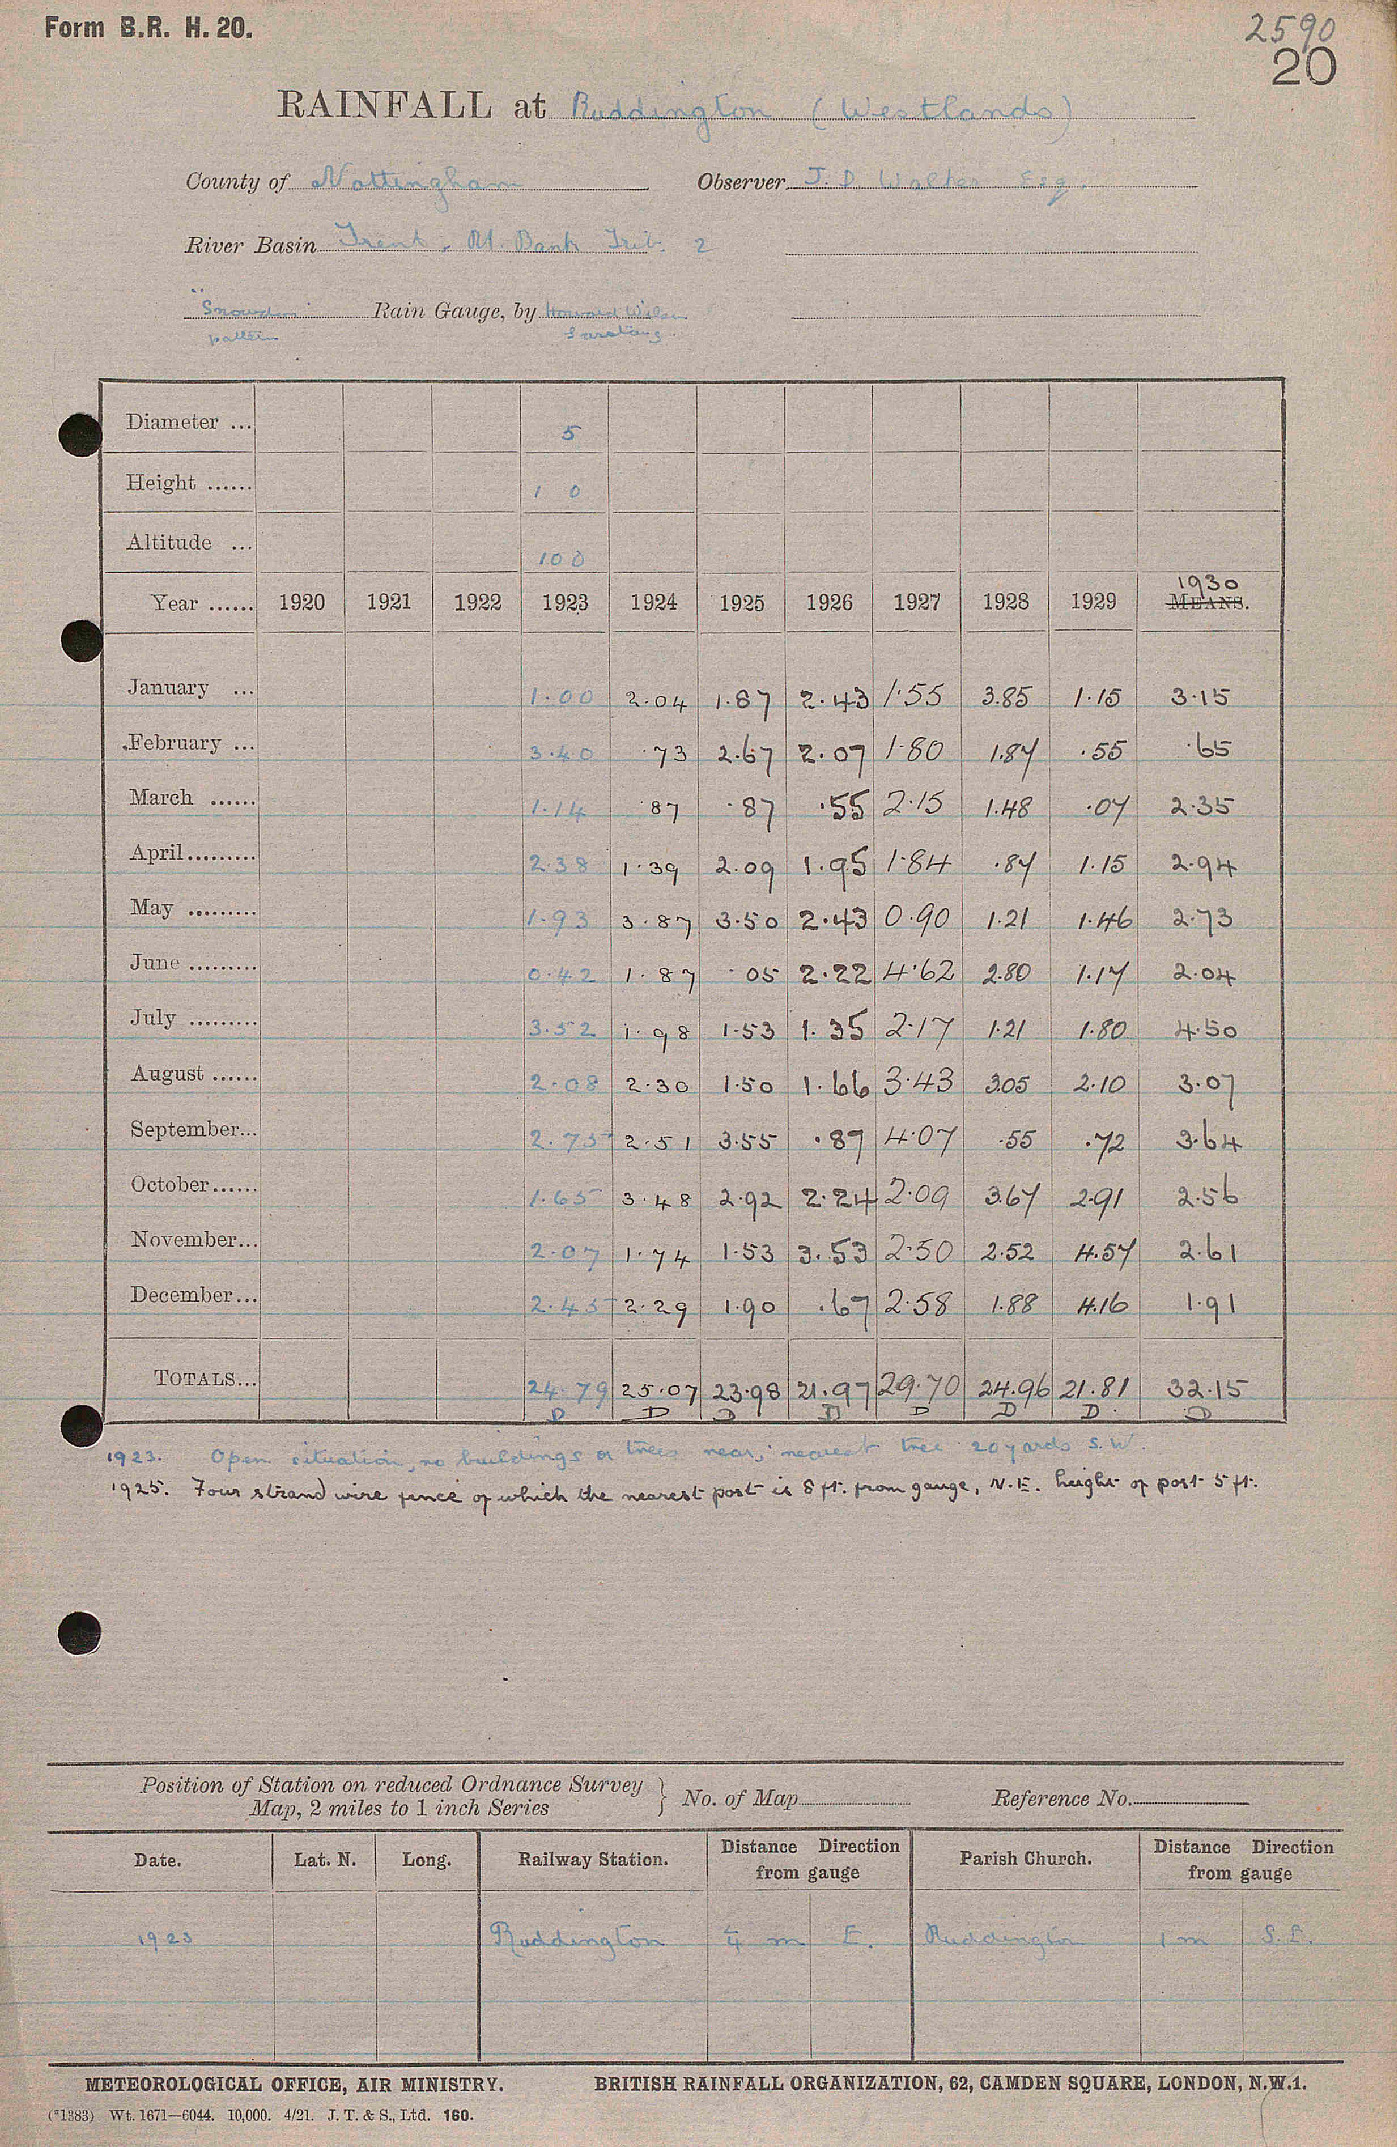 Form B.R. H. 20.
2590
20
RAINFALL at Ruddington (Westlands)
County of Nottingham Observer J. D. Walker Esq.
River Basin Trent, Rt. Bank Trib. 2
"Snowdon" pattern Rain Gauge, by Howard Wilson
Diameter ... 5
Height ...... 1 0
Altitude ... 100
Year ...... 1920 1921 1922 1923 1924 1925 1926 1927 1928 1929 1930 MEANS.
January ... 1.00 2.04 1.87 2.43 1.55 3.85 1.15 3.15
February ... 3.40 .73 2.67 2.07 1.80 1.87 .55 .65
March ...... 1.14 .87 .87 .55 2.15 1.48 .07 2.35
April......... 2.38 1.39 2.09 1.95 1.84 .87 1.15 2.94
May ......... 1.93 3.87 3.50 2.43 0.90 1.21 1.46 2.73
June ......... 0.42 1.87 .05 2.22 4.62 2.80 1.17 2.04
July ......... 3.52 1.98 1.53 1.35 2.17 1.21 1.80 4.50
August ...... 2.08 2.30 1.50 1.66 3.43 3.05 2.10 3.07
September... 2.75 2.51 3.55 .87 4.07 .55 .72 3.64
October...... 1.65 3.48 2.92 2.24 2.09 3.67 2.91 2.56
November... 2.07 1.74 1.53 3.53 2.50 2.52 4.57 2.61
December... 2.45 2.29 1.90 .67 2.58 1.88 4.16 1.91
TOTALS... 24.79 25.07 23.98 21.97 29.70 24.96 21.81 32.15
D D D D D D D D
1923. Open situation, no buildings or trees near, nearest tree 20 yards S.W.
1925. Four strand wire fence of which the nearest post is 8 ft. from gauge, N.E. height of post 5 ft.
Position of Station on reduced Ordnance Survey Map, 2 miles to 1 inch Series } No. of Map Reference No.
Date. Lat. N. Long. Railway Station. Distance Direction from gauge Parish Church. Distance Direction from gauge
1923 Ruddington ¼ m E. Ruddington 1 m S.E.
METEOROLOGICAL OFFICE, AIR MINISTRY. BRITISH RAINFALL ORGANIZATION, 62, CAMDEN SQUARE, LONDON, N.W.1.
(*1383) Wt. 1671—6044. 10,000. 4/21. J. T. & S., Ltd. 160.